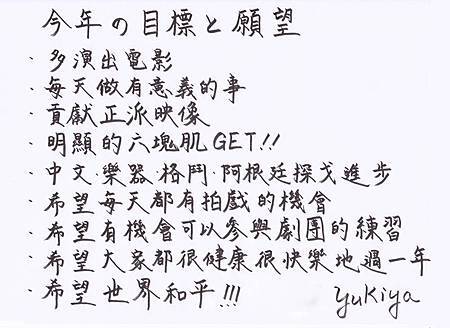 今年の目標と願望
・多演出電影
・每天做有意義的事
・貢獻正派映像
・明顯的六塊肌GET!!
・中文・樂器・格鬥・阿根廷探戈進步
・希望每天都有拍戲的機會
・希望有機會可以參與劇團的練習
・希望大家都很健康很快樂地過一年
・希望世界和平!!!
Yukiya